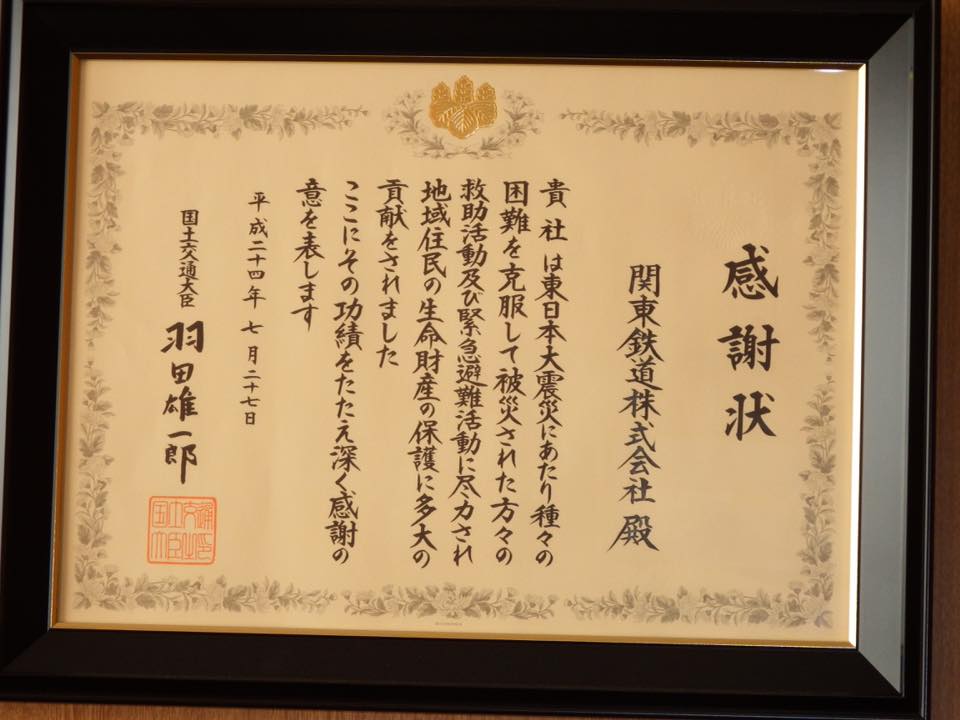 感謝状
関東鉄道株式会社 殿
貴社は東日本大震災にあたり種々の
困難を克服して被災された方々の
救助活動及び緊急避難活動に尽力され
地域住民の生命財産の保護に多大の
貢献をされました
ここにその功績をたたえ深く感謝の
意を表します
平成二十四年七月二十七日
国土交通大臣 羽田雄一郎
国土交通
大臣之印